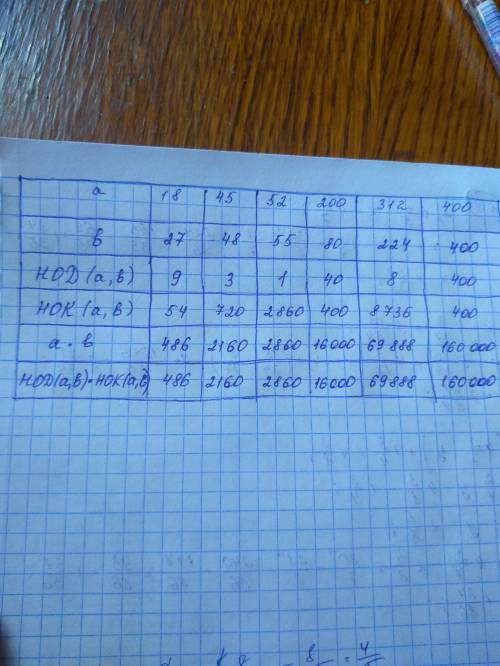 a 18 45 52 200 312 400
в 27 48 55 80 224 400
НОД (а, в) 9 3 1 40 8 400
НОК (а, в) 54 720 2860 400 8736 400
а · в 486 2160 2860 16000 69888 160000
НОД(а,в)·НОК(а,в) 486 2160 2860 16000 69888 160000